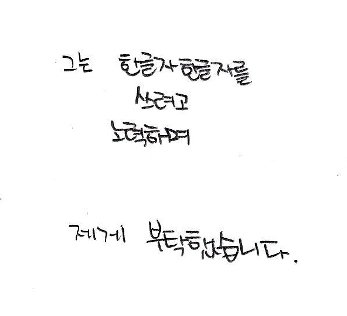 그는 한글자한글자를
쓰려고
노력하며
제게 부탁했습니다.